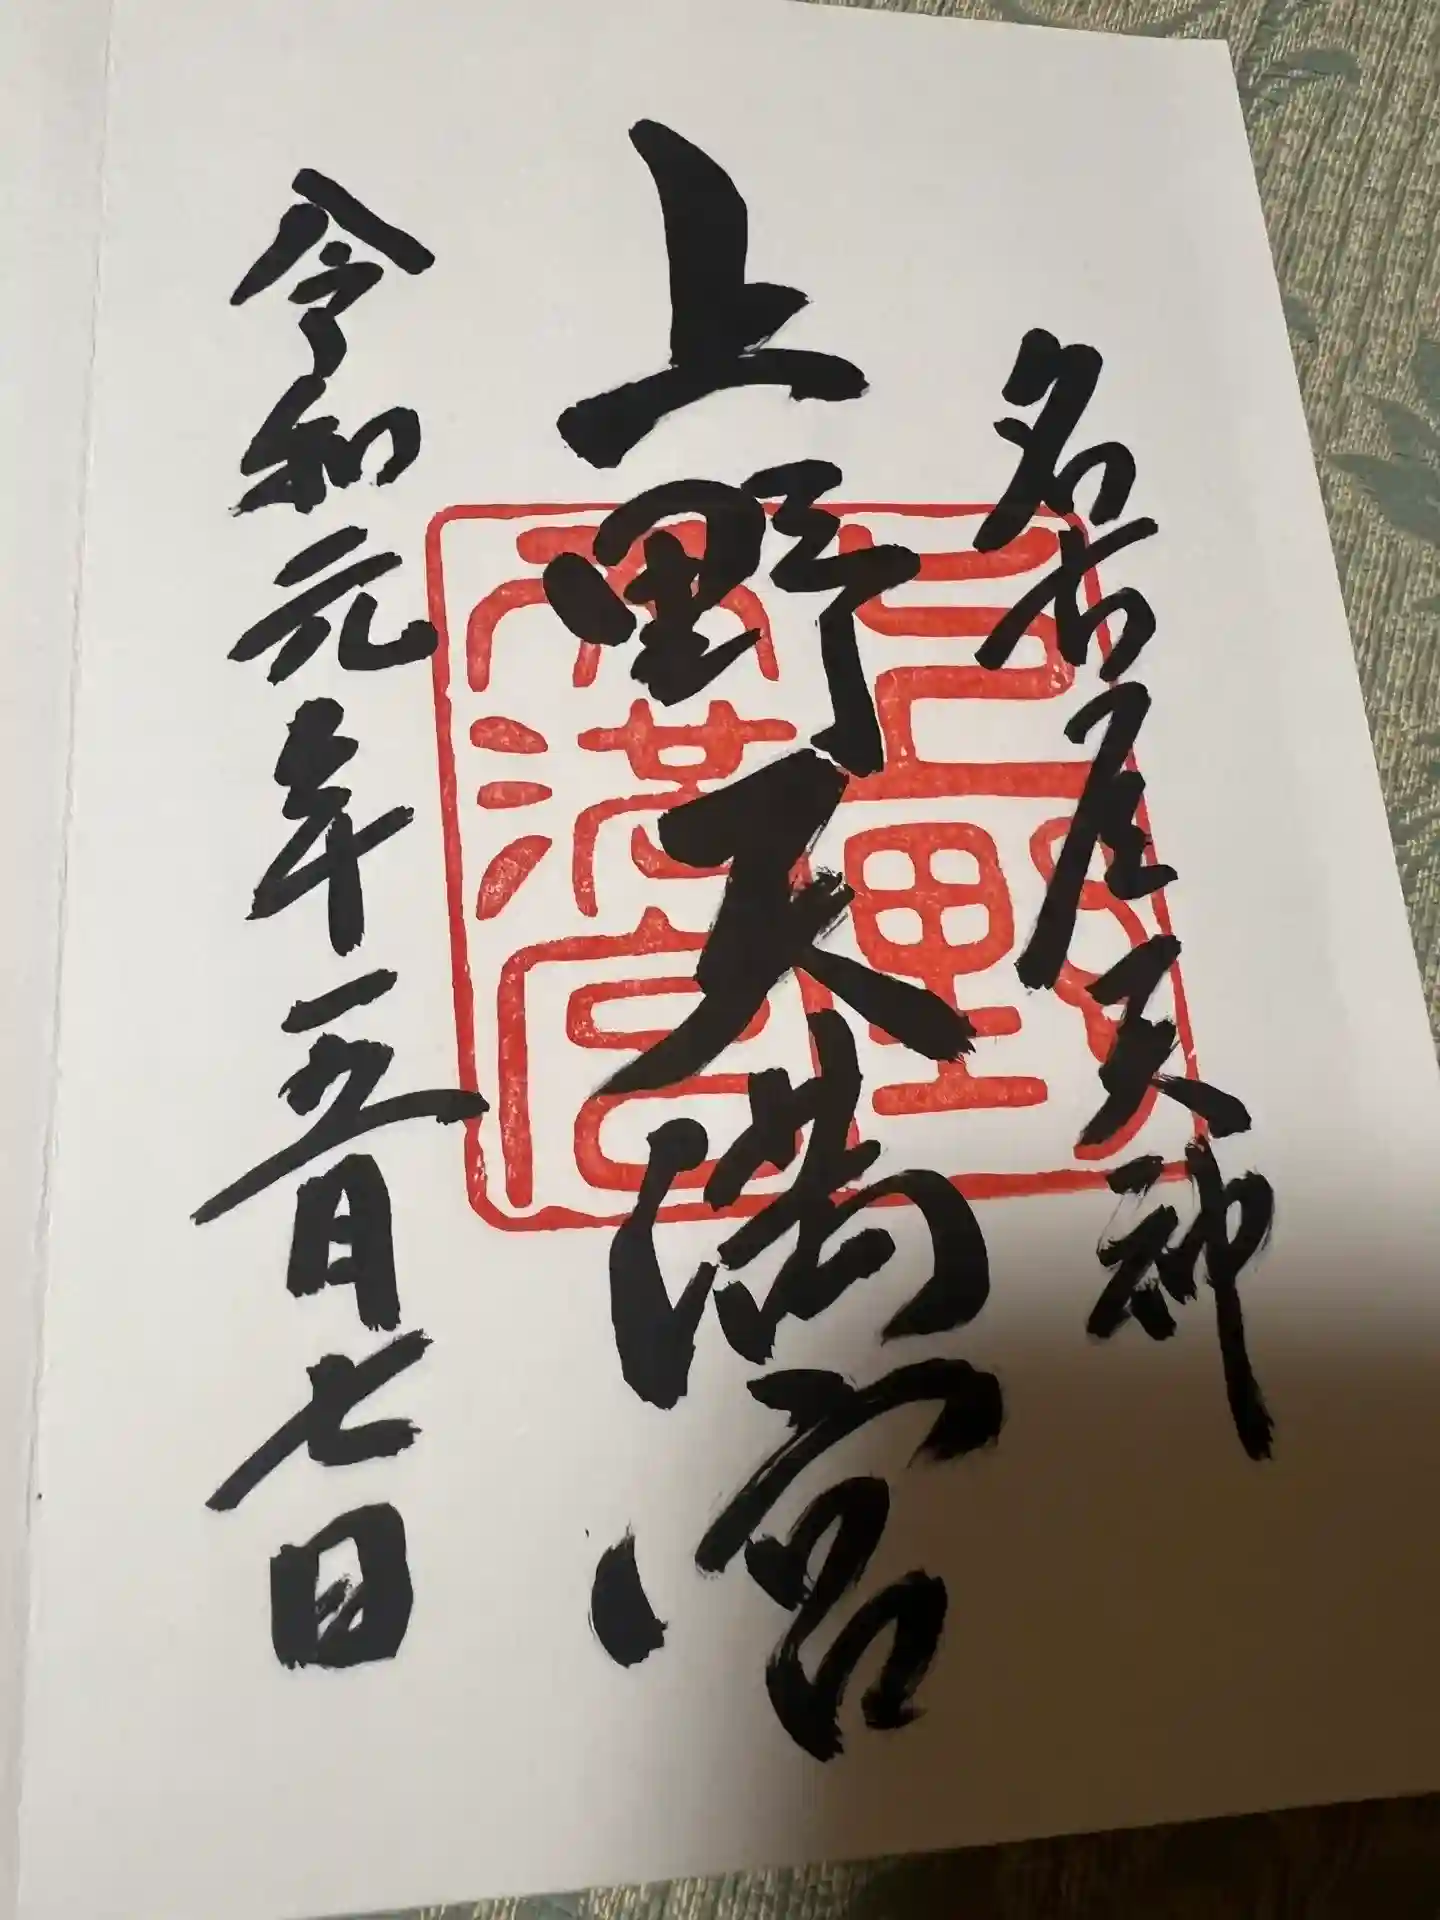 名古屋天神
上野天満宮
令和元年五月七日
上野
天満宮